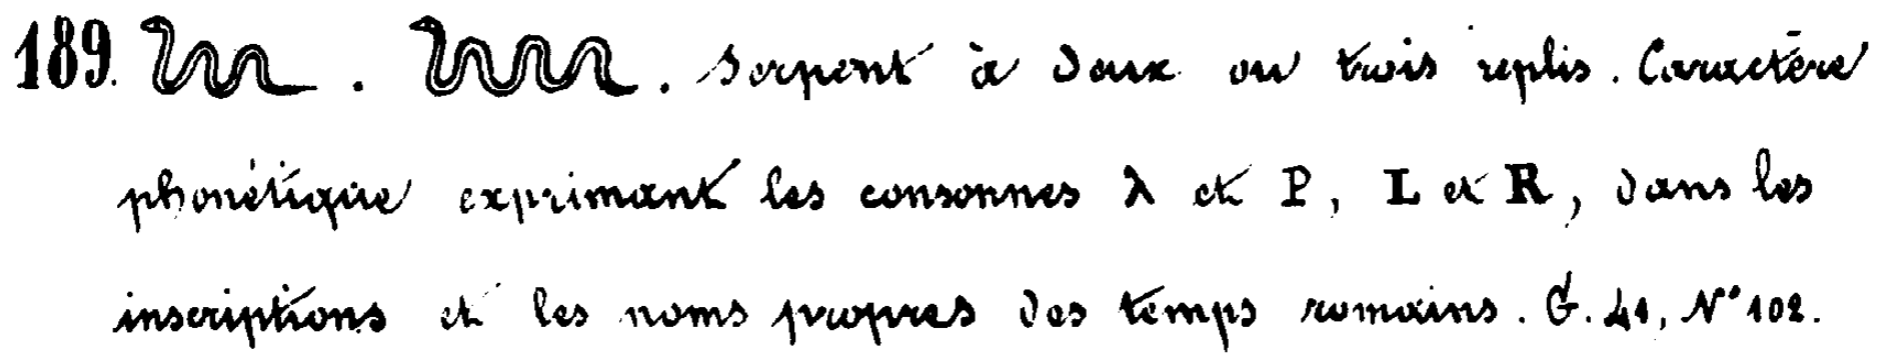 189. . . Serpent à deux ou trois replis. Caractère
phonétique exprimant les consonnes λ et P, L et R, dans les
inscriptions et les noms propres des temps romains. G. 41, N° 102.